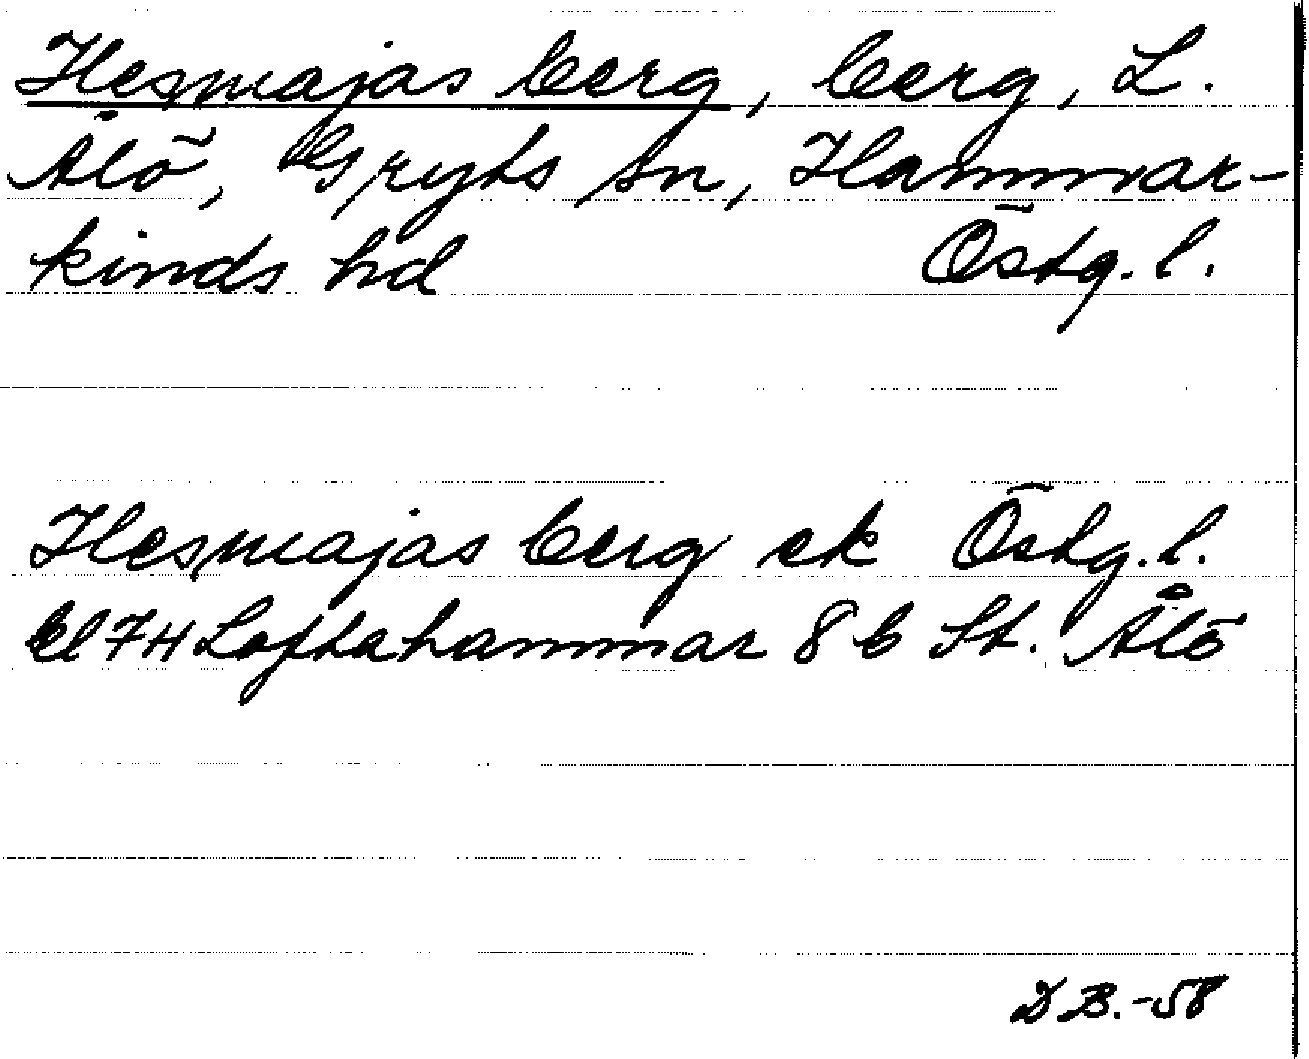 Hesmajas berg, berg, L.
Ålö, Gryts sn, Hammar-
kinds hd Östg. l.
Hesmajas berg ek Östg. l.
bl 7H Loftahammar 8b St. Ålö
D B.-58